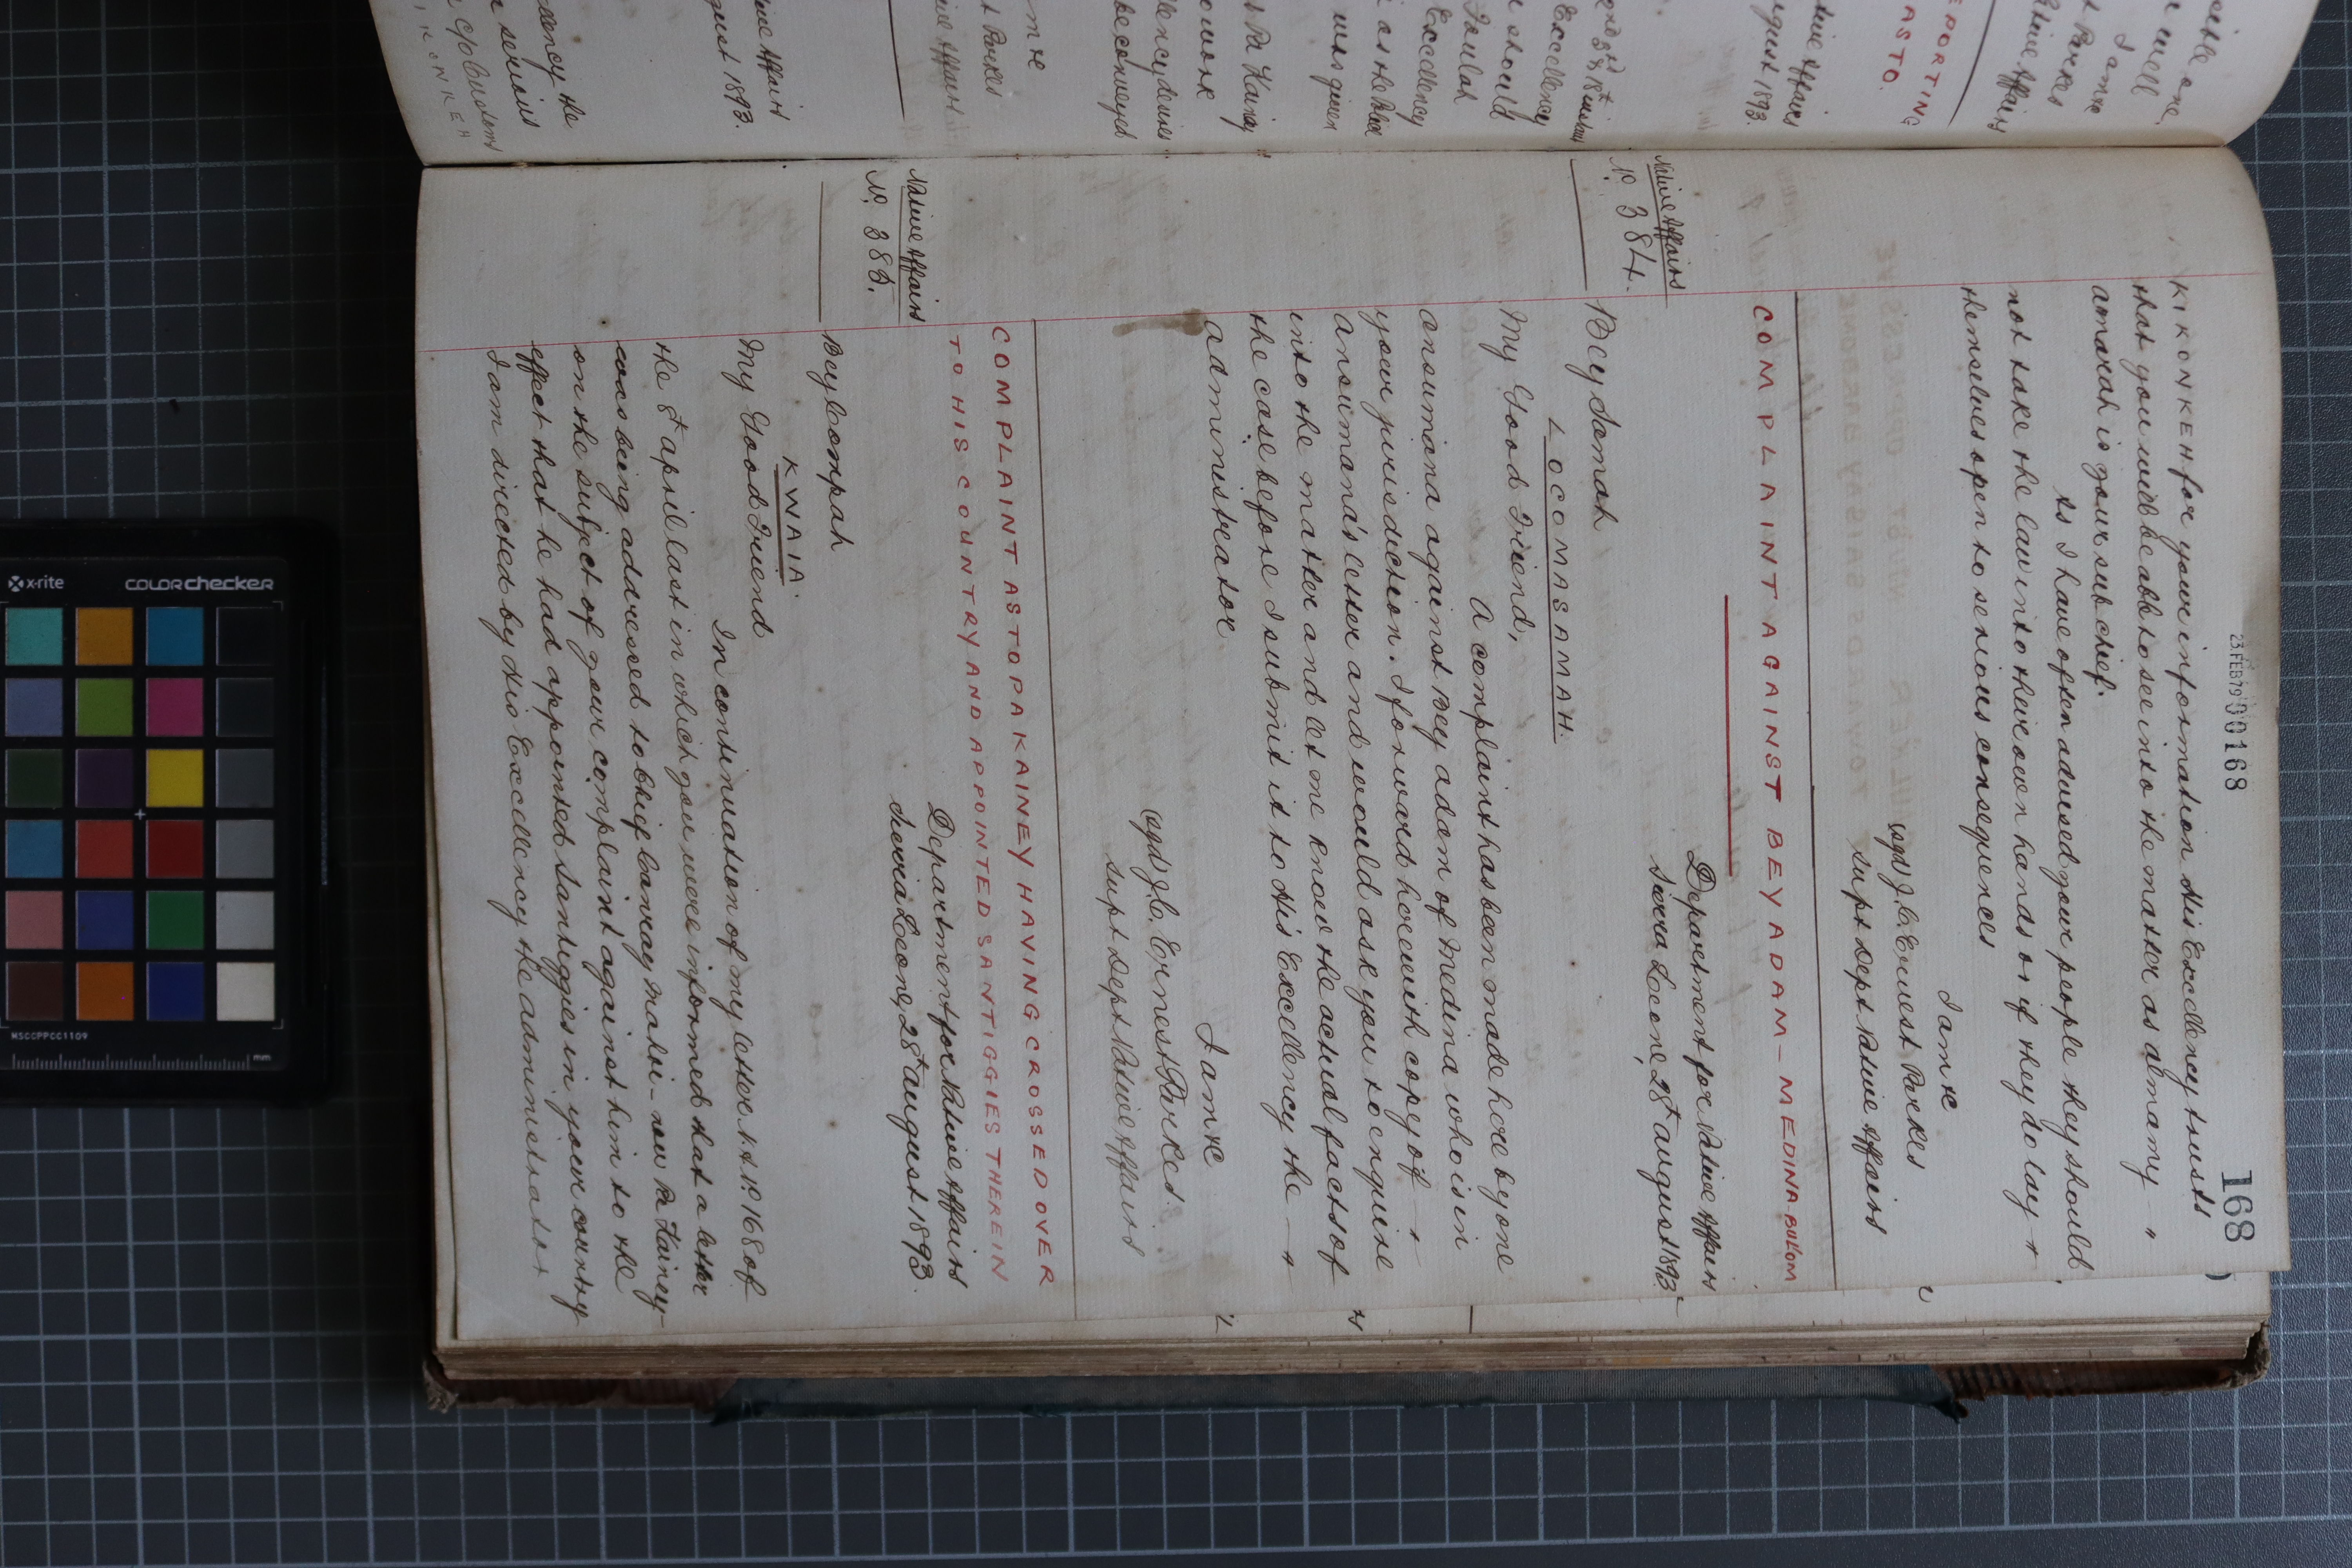 168
23 FEB 79 00168
KIKONKEH for your information His Excellency trusts
that you will be able to see into the matter as almamy
amarah is your sub chief.
As I have often advised your people they should
not take the law into their own hands as if they do lay
themselves open to serious consequences
I am &c
(sgd) J. C. Ernest Parkes
Supt Dept Native Affairs
COMPLAINT AGAINST BEY ADAM - MEDINA BULOM
Native Affairs
No. 384.
Department for Native Affairs
Sierra Leone, 28th august 1893
Bey Samah
LOCOMASAMAH.
My Good Friend,
A complaint has been made here by one
ansumana against Bey adam of Medina who is in
your jurisdiction. I forward herewith copy of
ansumana's letter and would ask you to enquire
into the matter and let me know the actual facts of
the case before I submit it to His Excellency the
administrator
I am &c
(sgd) J. C. Ernest Parkes
Supt Dept Native Affairs
COMPLAINT AS TO PA KAINEY HAVING CROSSED OVER
TO HIS COUNTRY AND APPOINTED SANTIGGIES THEREIN
Native Affairs
No. 385.
Department for Native Affairs
Sierra Leone, 28th august 1893.
Bey Compah
KWAIA.
My Good Friend
In continuation of my letter No. 168 of
the 8th april last in which you were informed that a letter
was being addressed to Chief Canray Mahoi - now Pa Kainey -
on the subject of your complaint against him to the
effect that he had appointed Santiggies in your country
I am directed by His Excellency the administrator
ncy the
serious
c/o Custom
august 1893.
Native Affairs
t Parkes
be conveyed
Pa Kainey
was given
Excellency
should
EPORTING
AS TO.
august 1893.
Native Affairs
I am &c
t Parkes